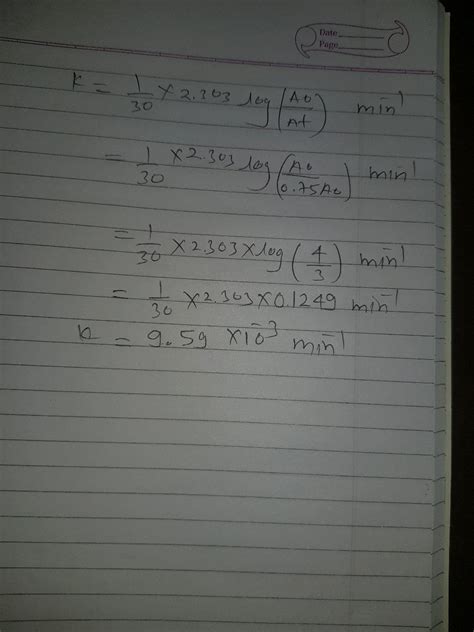 Date
Page
K = 1/30 × 2.303 log (A0/At) min⁻¹
= 1/30 × 2.303 log (A0/0.75A0) min⁻¹
= 1/30 × 2.303 × log (4/3) min⁻¹
= 1/30 × 2.303 × 0.1249 min⁻¹
k = 9.59 × 10⁻³ min⁻¹